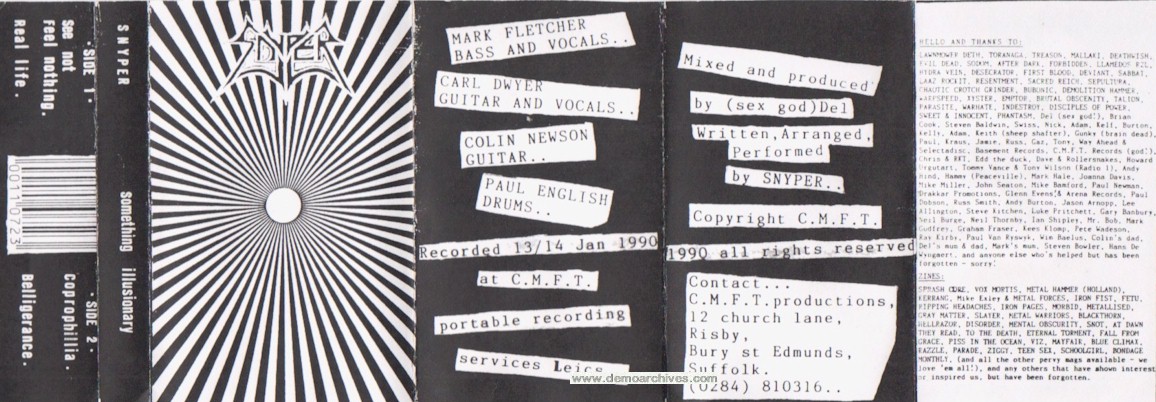 SNYPER something illusionary
· SIDE 1 ·
See not
Feel nothing.
Real life.
· SIDE 2 ·
Coprophillia.
Belligerance.
00110723
SNYPER
MARK FLETCHER
BASS AND VOCALS..
CARL DWYER
GUITAR AND VOCALS..
COLIN NEWSON
GUITAR..
PAUL ENGLISH
DRUMS..
Recorded 13/14 Jan 1990
at C.M.F.T.
portable recording
services Leics
Mixed and produced
by (sex god)Del
Written,Arranged,
Performed
by SNYPER..
Copyright C.M.F.T.
1990 all rights reserved
Contact...
C.M.F.T.productions,
12 church lane,
Risby,
Bury st Edmunds,
Suffolk.
(0284) 810316..
www.demoarchives.com
HELLO AND THANKS TO:
LAWNMOWER DETH, TORANAGA, TREASON, MALLAKI, DEATHWISH,
EVIL DEAD, SODOM, AFTER DARK, FORBIDDEN, LLAMEDOS R2L,
HYDRA VEIN, DESECRATOR, FIRST BLOOD, DEVIANT, SABBAT,
LAAZ ROCKIT, RESENTMENT, SACRED REICH, SEPULTURA,
CHAOTIC CROTCH GRINDER, BUBONIC, DEMOLITION HAMMER,
WARPSPEED, XYSTER, EMPTOR, BRUTAL OBSCENITY, TALION,
PARASITE, WARHATE, INDESTROY, DISCIPLES OF POWER,
SWEET & INNOCENT, PHANTASM, Del (sex god!), Brian
Cook, Steven Baldwin, Swiss, Nick, Adam, Kelf, Burton,
Kelly, Adam, Keith (sheep shafter), Gunky (brain dead),
Paul, Kraus, Jamie, Russ, Gaz, Tony, Way Ahead &
Selectadisc, Basement Records, C.M.F.T. Records (god!),
Chris & RKT, Edd the duck, Dave & Rollersnakes, Howard
Urgutart, Tommy Vance & Tony Wilson (Radio 1), Andy
Hind, Hammy (Peaceville), Mark Hale, Joanna Davis,
Mike Miller, John Seaton, Mike Bamford, Paul Newman,
Drakkar Promotions, Glenn Evens & Arena Records, Paul
Dobson, Russ Smith, Andy Burton, Jason Arnopp, Lee
Allington, Steve Kitchen, Luke Pritchett, Gary Banbury,
Neil Burge, Neil Thornby, Ian Shipley, Mr. Bob, Mark
Gudfrey, Graham Fraser, Kees Klomp, Pete Wadeson,
Ray Kirby, Paul Van Ryswyk, Wim Baelus, Colin's dad,
Del's mum & dad, Mark's mum, Steven Bowler, Hans De
Wyngaert, and anyone else who's helped but has been
forgotten - sorry!
ZINES:
SPRASH CORE, VOX MORTIS, METAL HAMMER (HOLLAND),
KERRANG, Mike Exley & METAL FORCES, IRON FIST, FETU,
RIPPING HEADACHES, IRON PAGES, MORBID, METALLISED,
GRAY MATTER, SLAYER, METAL WARRIORS, BLACKTHORN,
HELLRAZOR, DISORDER, MENTAL OBSCURITY, SNOT, AT DAWN
THEY READ, TO THE DEATH, ETERNAL TORMENT, FALL FROM
GRACE, PISS IN THE OCEAN, VIZ, MAYFAIR, BLUE CLIMAX,
RAZZLE, PARADE, ZIGGY, TEEN SEX, SCHOOLGIRL, BONDAGE
MONTHLY, (and all the other pervy mags available - we
love 'em all!), and any others that have shown interest
or inspired us, but have been forgotten.